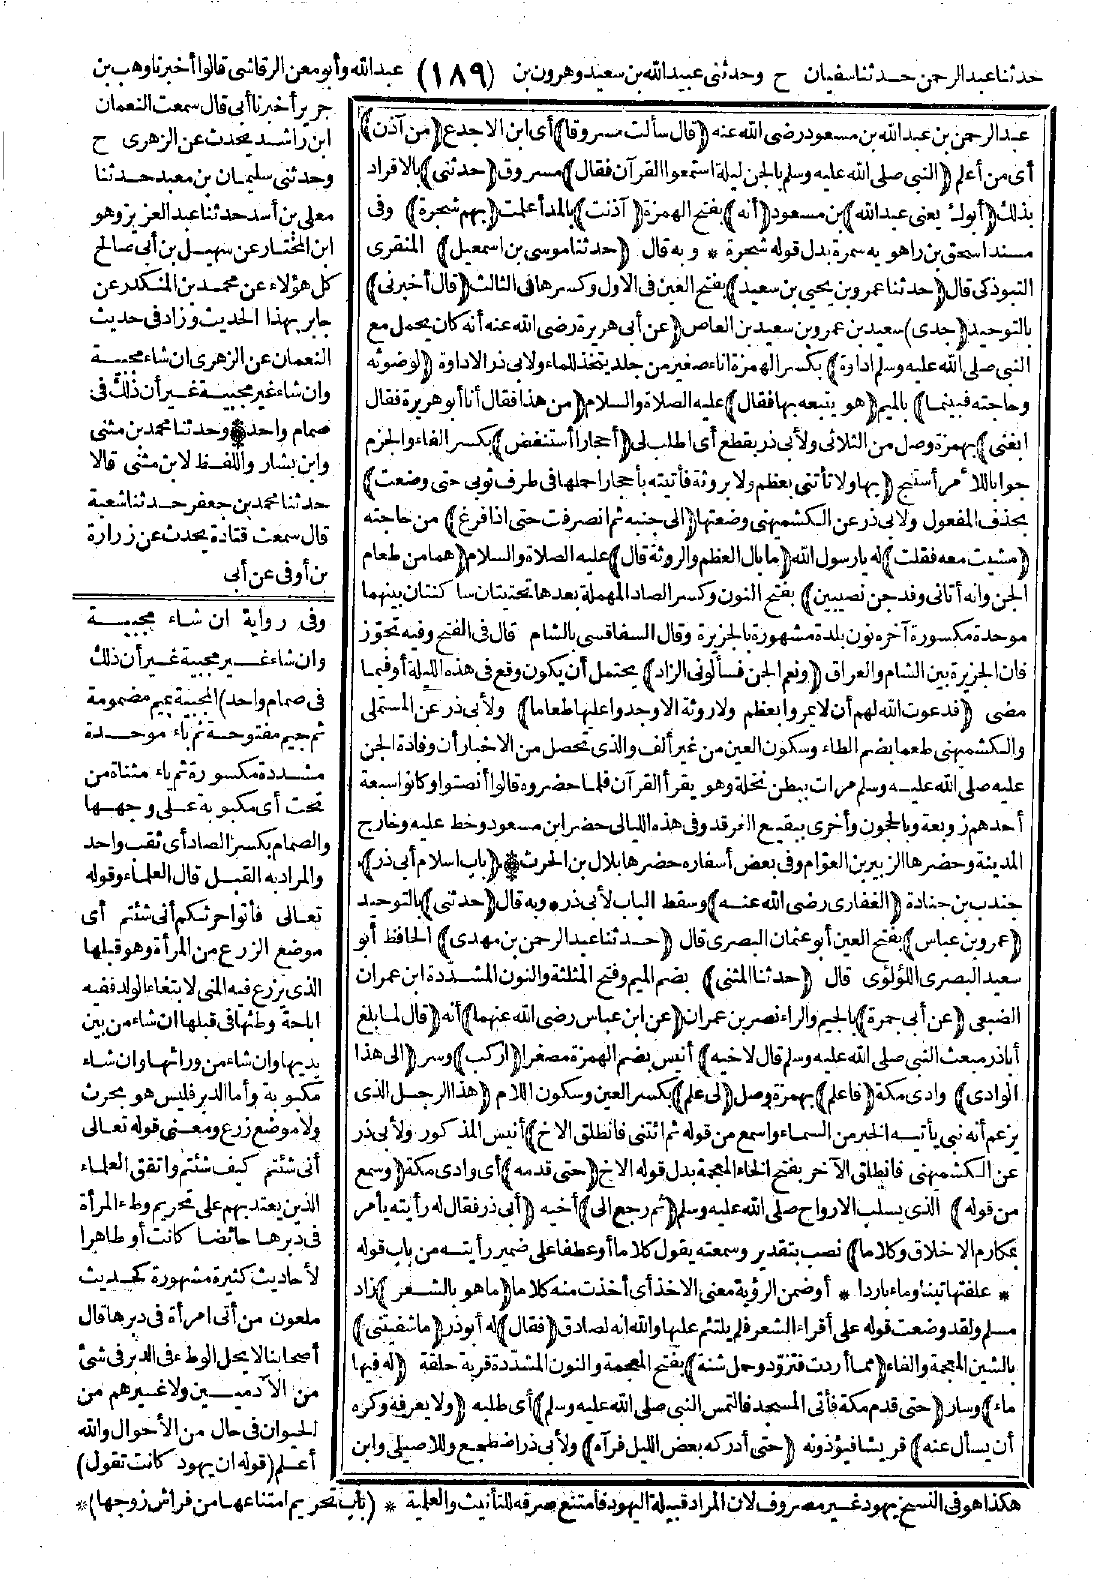 حدثنا عبد الرحمن حدثنا سفيان ح وحدثنى عبيد الله بن سعيد وهرون بن (١٨٩) عبد الله وأبو معن الرقاشى قالوا أخبرنا وهب بن
جرير أخبرنا أبى قال سمعت النعمان
ابن راشد يحدث عن الزهرى ح
وحدثنى سليمان بن معبد حدثنا
معلى بن أسد حدثنا عبد العزيز وهو
ابن المختار عن سهيل بن أبى صالح
كل هؤلاء عن محمد بن المنكدر عن
جابر بهذا الحديث وزاد فى حديث
النعمان عن الزهرى ان شاء مجبية
وان شاء غير مجبية غير أن ذلك فى
صمام واحد * وحدثنا محمد بن مثنى
وابن بشار واللفظ لابن مثنى قالا
حدثنا محمد بن جعفر حدثنا شعبة
قال سمعت قتادة يحدث عن زرارة
بن أوفى عن أبى
وفى رواية ان شاء مجبية
وان شاء غير مجبية غير أن ذلك
فى صمام واحد) المجبية بميم مضمومة
ثم جيم مفتوحة ثم باء موحدة
مشددة مكسورة ثم ياء مثناة من
تحت أى مكبوبة على وجهها
والصمام بكسر الصاد أى ثقب واحد
والمراد به القبل قال العلماء وقوله
تعالى فأتوا حرثكم أنى شئتم أى
موضع الزرع من المرأة وهو قبلها
الذى يزرع فيه المنى لابتغاء الولد ففيه
اباحة وطئها فى قبلها ان شاء من بين
يديها وان شاء من ورائها وان شاء
مكبوبة وأما الدبر فليس هو بحرث
ولا موضع زرع ومعنى قوله تعالى
أنى شئتم كيف شئتم واتفق العلماء
الذين يعتد بهم على تحريم وطء المرأة
فى دبرها حائضا كانت أو طاهرا
لأحاديث كثيرة مشهورة كحديث
ملعون من أتى امرأة فى دبرها قال
أصحابنا لا يحل الوطء فى الدبر فى شئ
من الآدميين ولا غيرهم من
الحيوان فى حال من الأحوال والله
أعلم (قوله ان يهود كانت تقول)
عبد الرحمن بن عبد الله بن مسعود رضى الله عنه (قال سألت مسروقا) أى ابن الاجدع (من آذن)
أى من أعلم (النبى صلى الله عليه وسلم بالجن ليلة استمعوا القرآن فقال) مسروق (حدثنى) بالافراد
بذلك (أبوك يعنى عبد الله) بن مسعود (أنه) بفتح الهمزة (آذنت) بالمد أعلمت (بهم شجرة) وفى
مسند اسحق بن راهويه سمرة بدل قوله شجرة * وبه قال (حدثنا موسى بن اسمعيل) المنقرى
التبوذكى قال (حدثنا عمرو بن يحيى بن سعيد) بفتح العين فى الاول وكسرها فى الثالث (قال أخبرنى)
بالتوحيد (جدى) سعيد بن عمرو بن سعيد بن العاص (عن أبى هريرة رضى الله عنه أنه كان يحمل مع
النبى صلى الله عليه وسلم اداوة) بكسر الهمزة اناء صغير من جلد يتخذ للماء ولابى ذر الاداوة (لوضوئه
وحاجته فبينما) بالميم (هو يتبعه بها فقال) عليه الصلاة والسلام (من هذا فقال أنا أبو هريرة فقال
ابغنى) بهمزة وصل من الثلاثى ولأبى ذر بقطع أى اطلب لى (أحجارا أستنفض) بكسر الفاء والجزم
جوابا للأمر أستنج (بها ولا تأتنى بعظم ولا بروثة فأتيته بأحجار احملها فى طرف ثوبى حتى وضعت)
بحذف المفعول ولأبى ذر عن الكشميهنى وضعتها (الى جنبه ثم انصرفت حتى اذا فرغ) من حاجته
(مشيت معه فقلت) له يا رسول الله (ما بال العظم والروثة قال) عليه الصلاة والسلام (هما من طعام
الجن وانه أتانى وفد جن نصيبين) بفتح النون وكسر الصاد المهملة بعدها تحتيتان ساكنتان بينهما
موحدة مكسورة آخره نون بلدة مشهورة بالجزيرة وقال السفاقسى بالشام قال فى الفتح وفيه تجوّز
فان الجزيرة بين الشام والعراق (ونعم الجن فسألونى الزاد) يحتمل أن يكون وقع فى هذه الليلة أو فيما
مضى (فدعوت الله لهم أن لا يمروا بعظم ولا روثة الا وجدوا عليها طعاما) ولأبى ذر عن المستملى
والكشميهنى طعما بضم الطاء وسكون العين من غير ألف والذى تحصل من الاخبار أن وفادة الجن
عليه صلى الله عليه وسلم مرات ببطن نخلة وهو يقرأ القرآن فلما حضروه قالوا أنصتوا وكانوا سبعة
أحدهم زوبعة وبالحجون وأخرى ببقيع الغرقد وفى هذه الليالى حضر ابن مسعود وخط عليه وخارج
المدينة وحضرها الزبير بن العوّام وفى بعض أسفاره حضرها بلال بن الحرث * (باب اسلام أبى ذر)
جندب بن جنادة (الغفارى رضى الله عنه) وسقط الباب لأبى ذر * وبه قال (حدثنى) بالتوحيد
(عمرو بن عباس) بفتح العين أبو عثمان البصرى قال (حدثنا عبد الرحمن بن مهدى) الحافظ أبو
سعيد البصرى اللؤلؤى قال (حدثنا المثنى) بضم الميم وفتح المثلثة والنون المشدّدة ابن عمران
الضبعى (عن أبى جمرة) بالجيم والراء نصر بن عمران (عن ابن عباس رضى الله عنهما) أنه (قال لما بلغ
أبا ذر مبعث النبى صلى الله عليه وسلم قال لاخيه) أنيس بضم الهمزة مصغرا (اركب) وسر (الى هذا
الوادى) وادى مكة (فاعلم) بهمزة وصل (لى علم) بكسر العين وسكون اللام (هذا الرجل الذى
يزعم أنه نبى يأتيه الخبر من السماء واسمع من قوله ثم ائتنى فانطلق الاخ) أنيس المذكور ولأبى ذر
عن الكشميهنى فانطلق الآخر بفتح الخاء المعجمة بدل قوله الاخ (حتى قدمه) أى وادى مكة (وسمع
من قوله) الذى يسلب الارواح صلى الله عليه وسلم (ثم رجع الى) أخيه (أبى ذر فقال له رأيته يأمر
بمكارم الاخلاق وكلاما) نصب بتقدير وسمعته يقول كلاما أو عطفا على ضمير رأيته من باب قوله
* علفتها تبنا وماء باردا * أو ضمن الرؤية معنى الاخذ أى أخذت منه كلاما (ما هو بالشعر) زاد
مسلم ولقد وضعت قوله على أقراء الشعر فلم يلتئم عليها والله انه لصادق (فقال) له أبو ذر (ما شفيتنى)
بالشين المعجمة والفاء (مما أردت فتزوّد وحمل شنة) بفتح المعجمة والنون المشدّدة قربة خلقة (له فيها
ماء) وسار (حتى قدم مكة فأتى المسجد فالتمس النبى صلى الله عليه وسلم) أى طلبه (ولا يعرفه وكره
أن يسأل عنه) قريشا فيؤذونه (حتى أدركه بعض الليل فرآه) ولأبى ذر اضطجع وللاصيلى وابن
هكذا هو فى النسخ يهود غير مصروف لان المراد قبيلة اليهود فامتنع صرفه للتأنيث والعلمية * (باب تحريم امتناعها من فراش زوجها) *